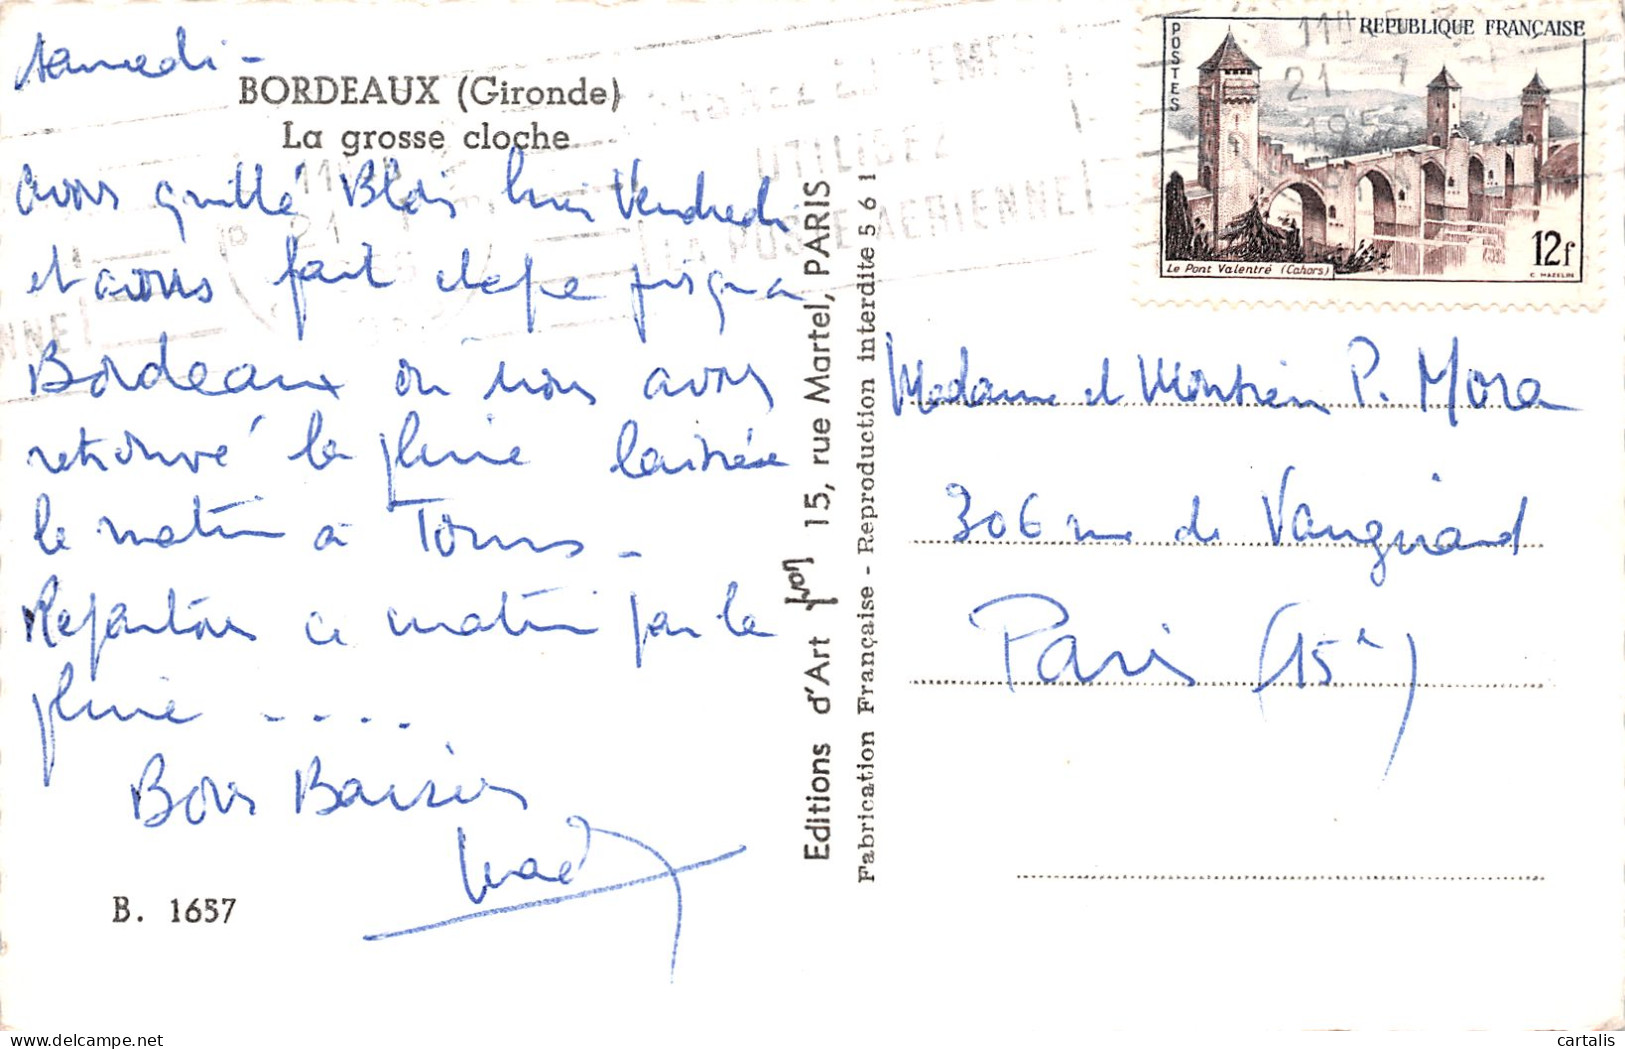 samedi -
BORDEAUX (Gironde)
La grosse cloche
avons quitté Blois hier Vendredi
et avons fait étape jusqu'a
Bordeaux où nous avons
retrouvé la pluie laissée
le matin à Tours -
Repartons ce matin par la
pluie - - - -
Bons Baisers
B. 1657
Editions d'Art Yvon 15, rue Martel, PARIS
Fabrication Française - Reproduction interdite 5 6 6 1
POSTES
REPUBLIQUE FRANÇAISE
Le Pont Valentré (Cahors)
12f
C. MAZELIN
11H
21 - 7
195
UTILISEZ
LA POSTE AERIENNE
Madame et Monsieur P. Mora
306 rue de Vaugirard
Paris (15e)
cartalis